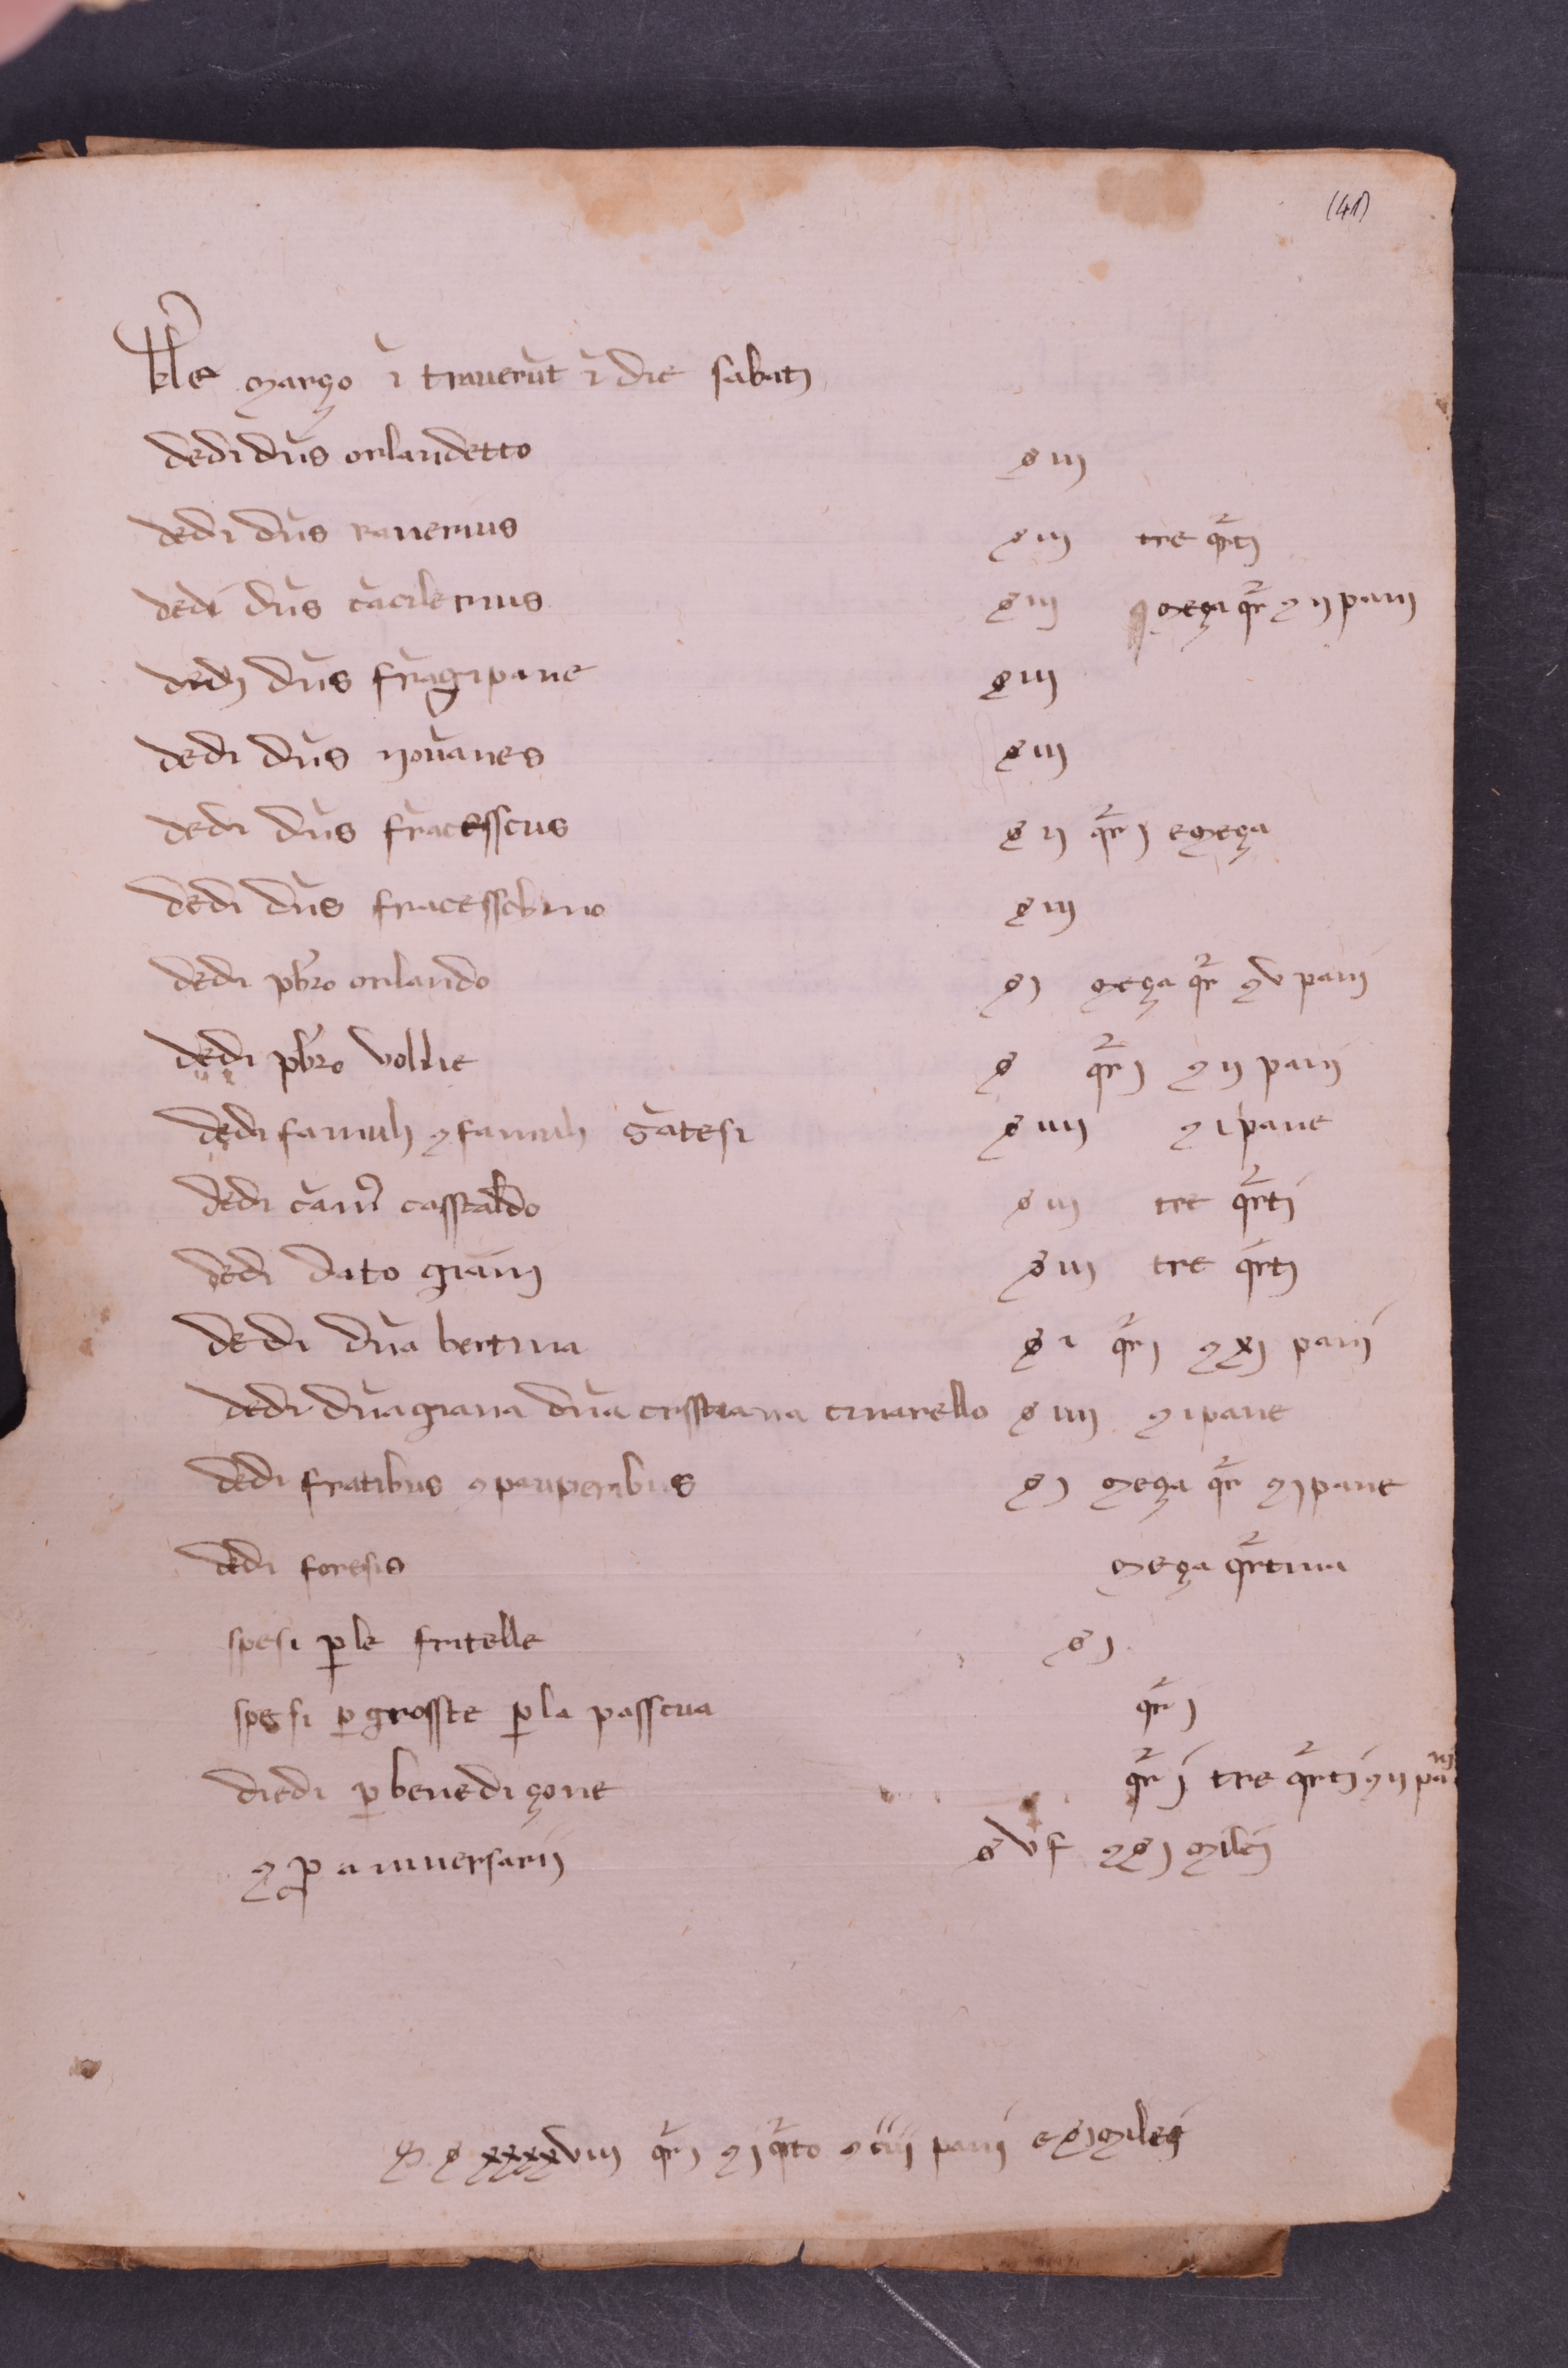 (41)
kl̄e março ī traverūt ī die sabatj
dedi dn̄s orlandetto ș iij
dedi dn̄s ranerius ș iij tre qr̄tj
dedi dn̄s cācilerius ș iij meça qr̄ ⁊ ij panj
dedj dn̄s frāgipane ș iij
dedi dn̄s novanes ș iij
dedi dn̄s frācesscus ș ij qr̄ j e meça
dedi dn̄s fracesschino ș iij
dedi pb̄ro orlando ș j meça qr̄ ⁊ v panj
dedi pb̄ro vollie ș qr̄ j ⁊ ij panj
dedi famulj ⁊ famulj gātesi ș iiij ⁊ i pane
dedi cān casstaldo ș iij tre qr̄tj
dedi dato gianj ș iij tre qr̄tj
dedi dn̄a bertina ș i qr̄ j ⁊ xj panj
dedi dn̄a giana dn̄a crisstiana cinarello ș iiij ⁊ i pane
dedi fratibus ⁊ pauperibus ș j meça qr̄ ⁊ j pane
dedi foresis meça qr̄tina
spesi ꝑ le fritelle ș j
spesi ꝑ grosste ꝑ la passcua qr̄ j
diedi ꝑ benediçone qr̄ j tre qr̄tj ⁊ ij panj
⁊ ꝓ aniversarij ș vj ⁊ ș j milej
ș xxxxviij qr̄ j ⁊ j qr̄to ⁊ ciij panj e ș j milej